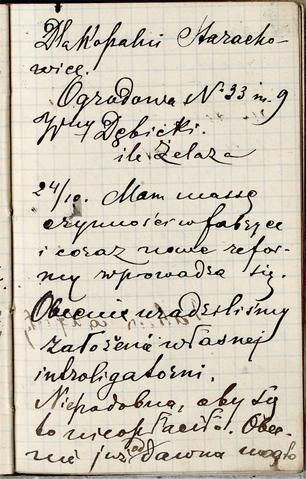 Dla Kopalni Staracho-
wice.
Ogrodowa N° 33 m. 9
Dębicki.
ile Żelaza
24/10. Mam masę
czynności w fabryce
i coraz nowe refor-
my wprowadza się.
Obecnie uradziliśmy
założenie własnej
introligatorni.
Niepodobna, aby się
to nieopłaciło. Obec-
nie już od dawna mogło